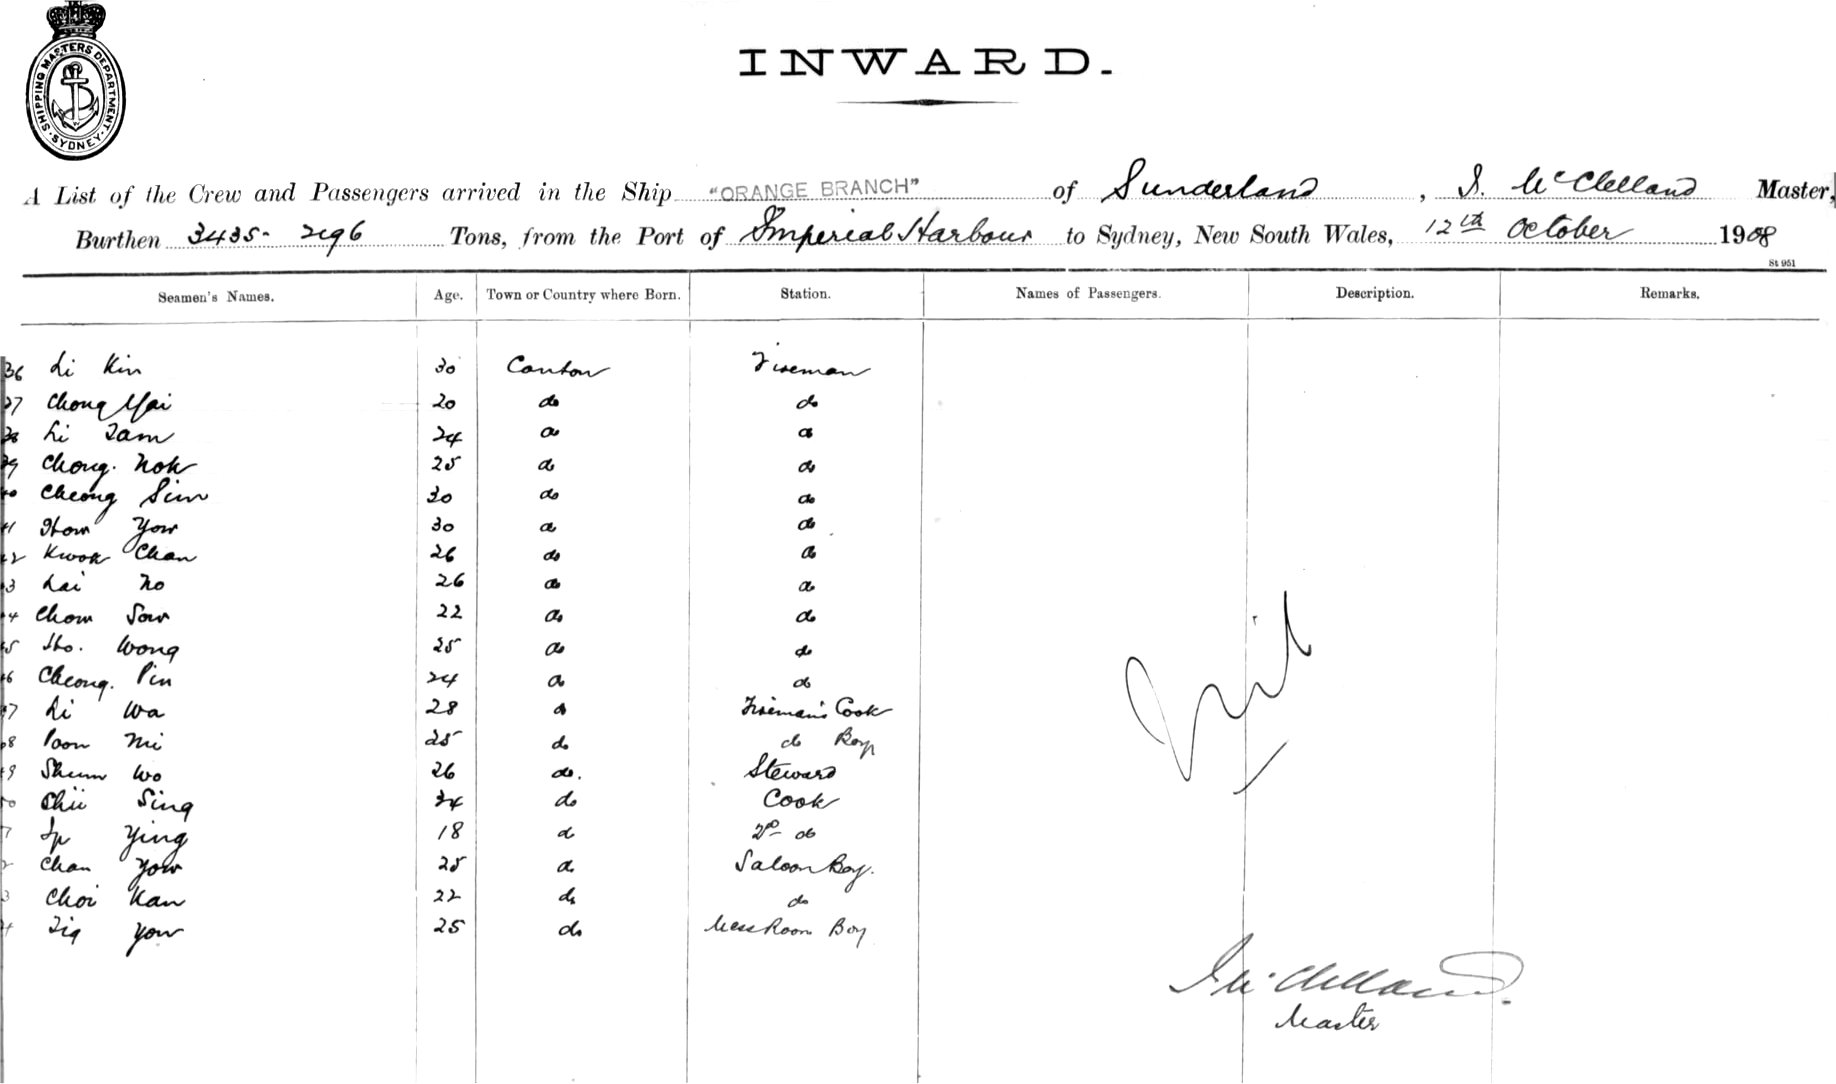 SHIPPING MASTERS DEPARTMENT
· SYDNEY ·
INWARD.
A List of the Crew and Passengers arrived in the Ship "ORANGE BRANCH" of Sunderland, McClelland Master,
Burthen 3435- Tons, from the Port of Imperial Harbour to Sydney, New South Wales, 12th October 1908
St 951
Seamen's Names. Age. Town or Country where Born. Station. Names of Passengers. Description. Remarks.
36 Li Kin 30 Canton Fireman
37 Chong Mai 20 do do
38 Li Tam 24 do do
39 Chong. Nok 25 do do
40 Cheong Sim 30 do do
41 How Yow 30 do do
42 Kwok Chan 26 do do
43 Lai No 26 do do
44 Chow Sow 22 do do
45 Ho. Wong 25 do do
46 Cheong. Pin 24 do do
47 Li Wa 28 do Fireman's Cook
48 Poon Mi 25 do do Boy
49 Shum Wo 26 do. Steward
50 Chii Sing 34 do Cook
Ip Ying 18 do 2nd do
Chan Yow 25 do Saloon Boy.
3 Choi Kan 22 do do
4 Yow 25 do Mess Room Boy
Nil
McClelland.
Master